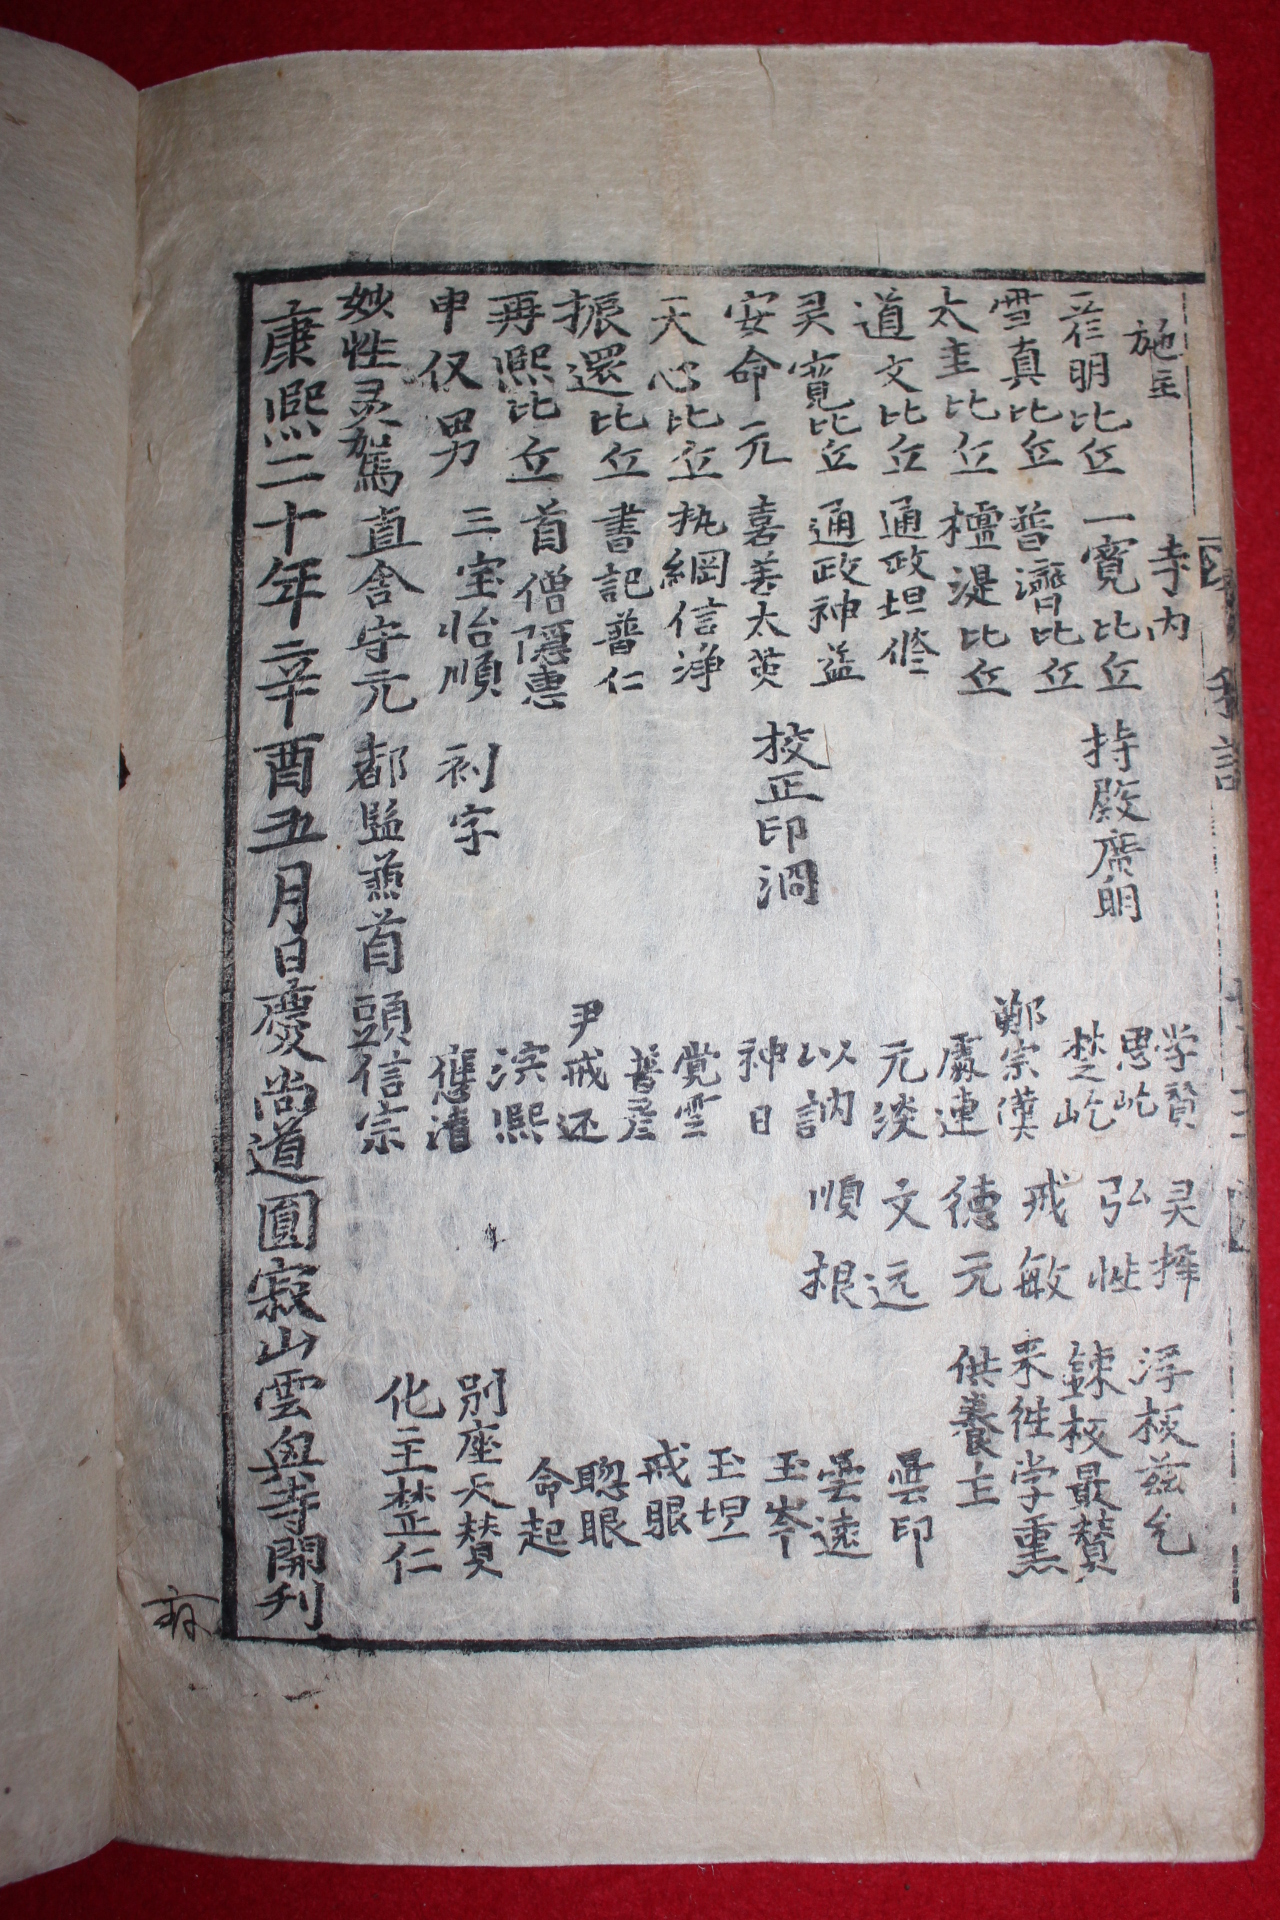 施主 寺内
一寛比丘 持殿廣明 学賛 灵擇 浮板玆允
雪真比丘 普濟比丘 思屹 弘性 鍊板最賛
太圭比丘 檀湜比丘 鄭宗漢 戒敏 来往学熏
道文比丘 通政坦修 處連 德元 供養主
灵寬比丘 通政神益 元淡 文远 曇印
安命元 嘉善太英 校正印涸 以訥 順根 雲遠
天心比丘 执綱信淨 神日 玉岑
振還比丘 書記普仁 覚雲 玉坦
再熙比丘 首僧隱惠 普彦 戒眼
申仅男 三宝怡順 刻字 尹戒还 聦眼
妙性灵駕 直舍守元 都監䓲首 頭信宗 命起
別座天賛
化主楚仁
康熙二十年辛酉五月日慶尚道圓寂山雲興寺開刊